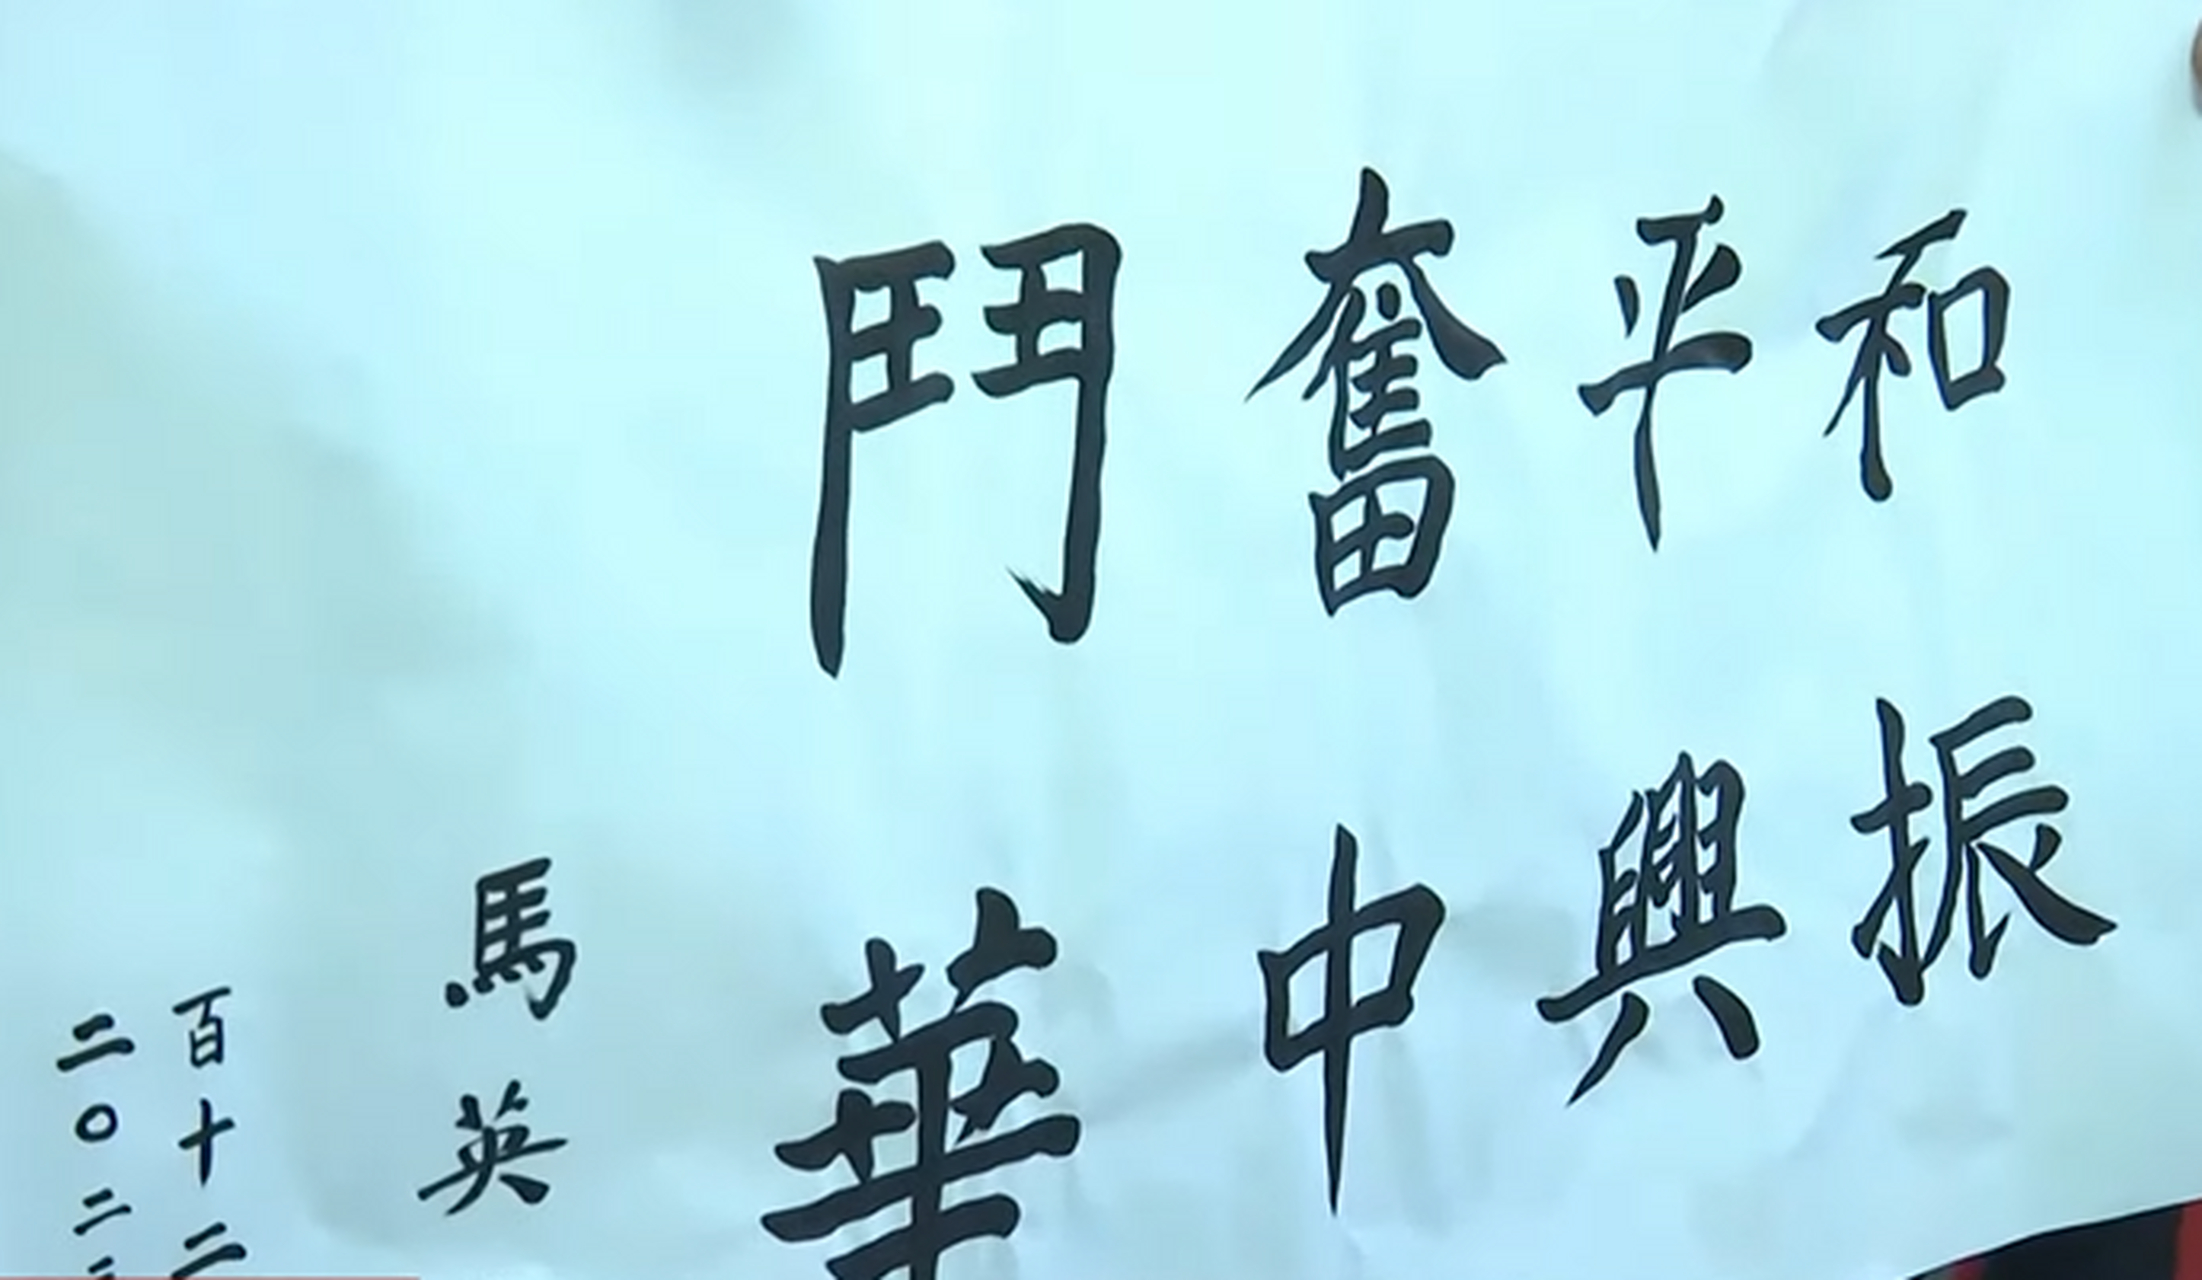 和平奮鬥
振興中華
馬英
百十二
二〇二